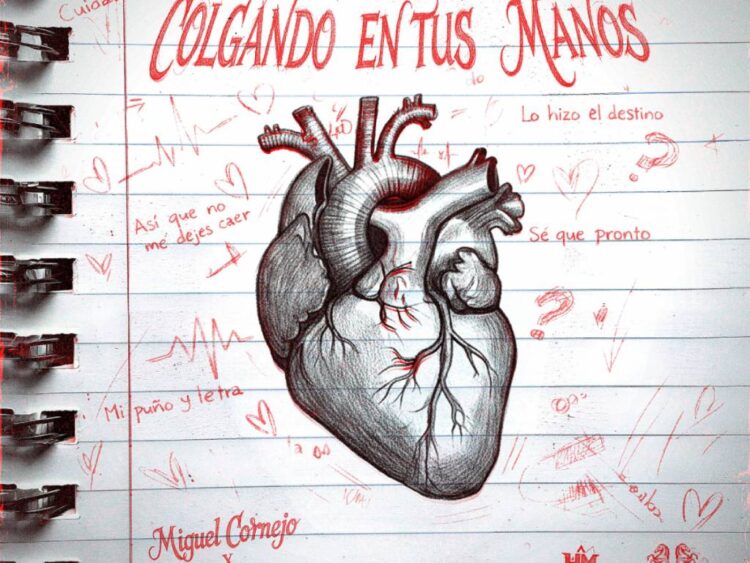 COLGANDO EN TUS MANOS
Lo hizo el destino
Así que no
me dejes caer
Sé que pronto
?
?
Mi puño y letra
Miguel Cornejo
Y